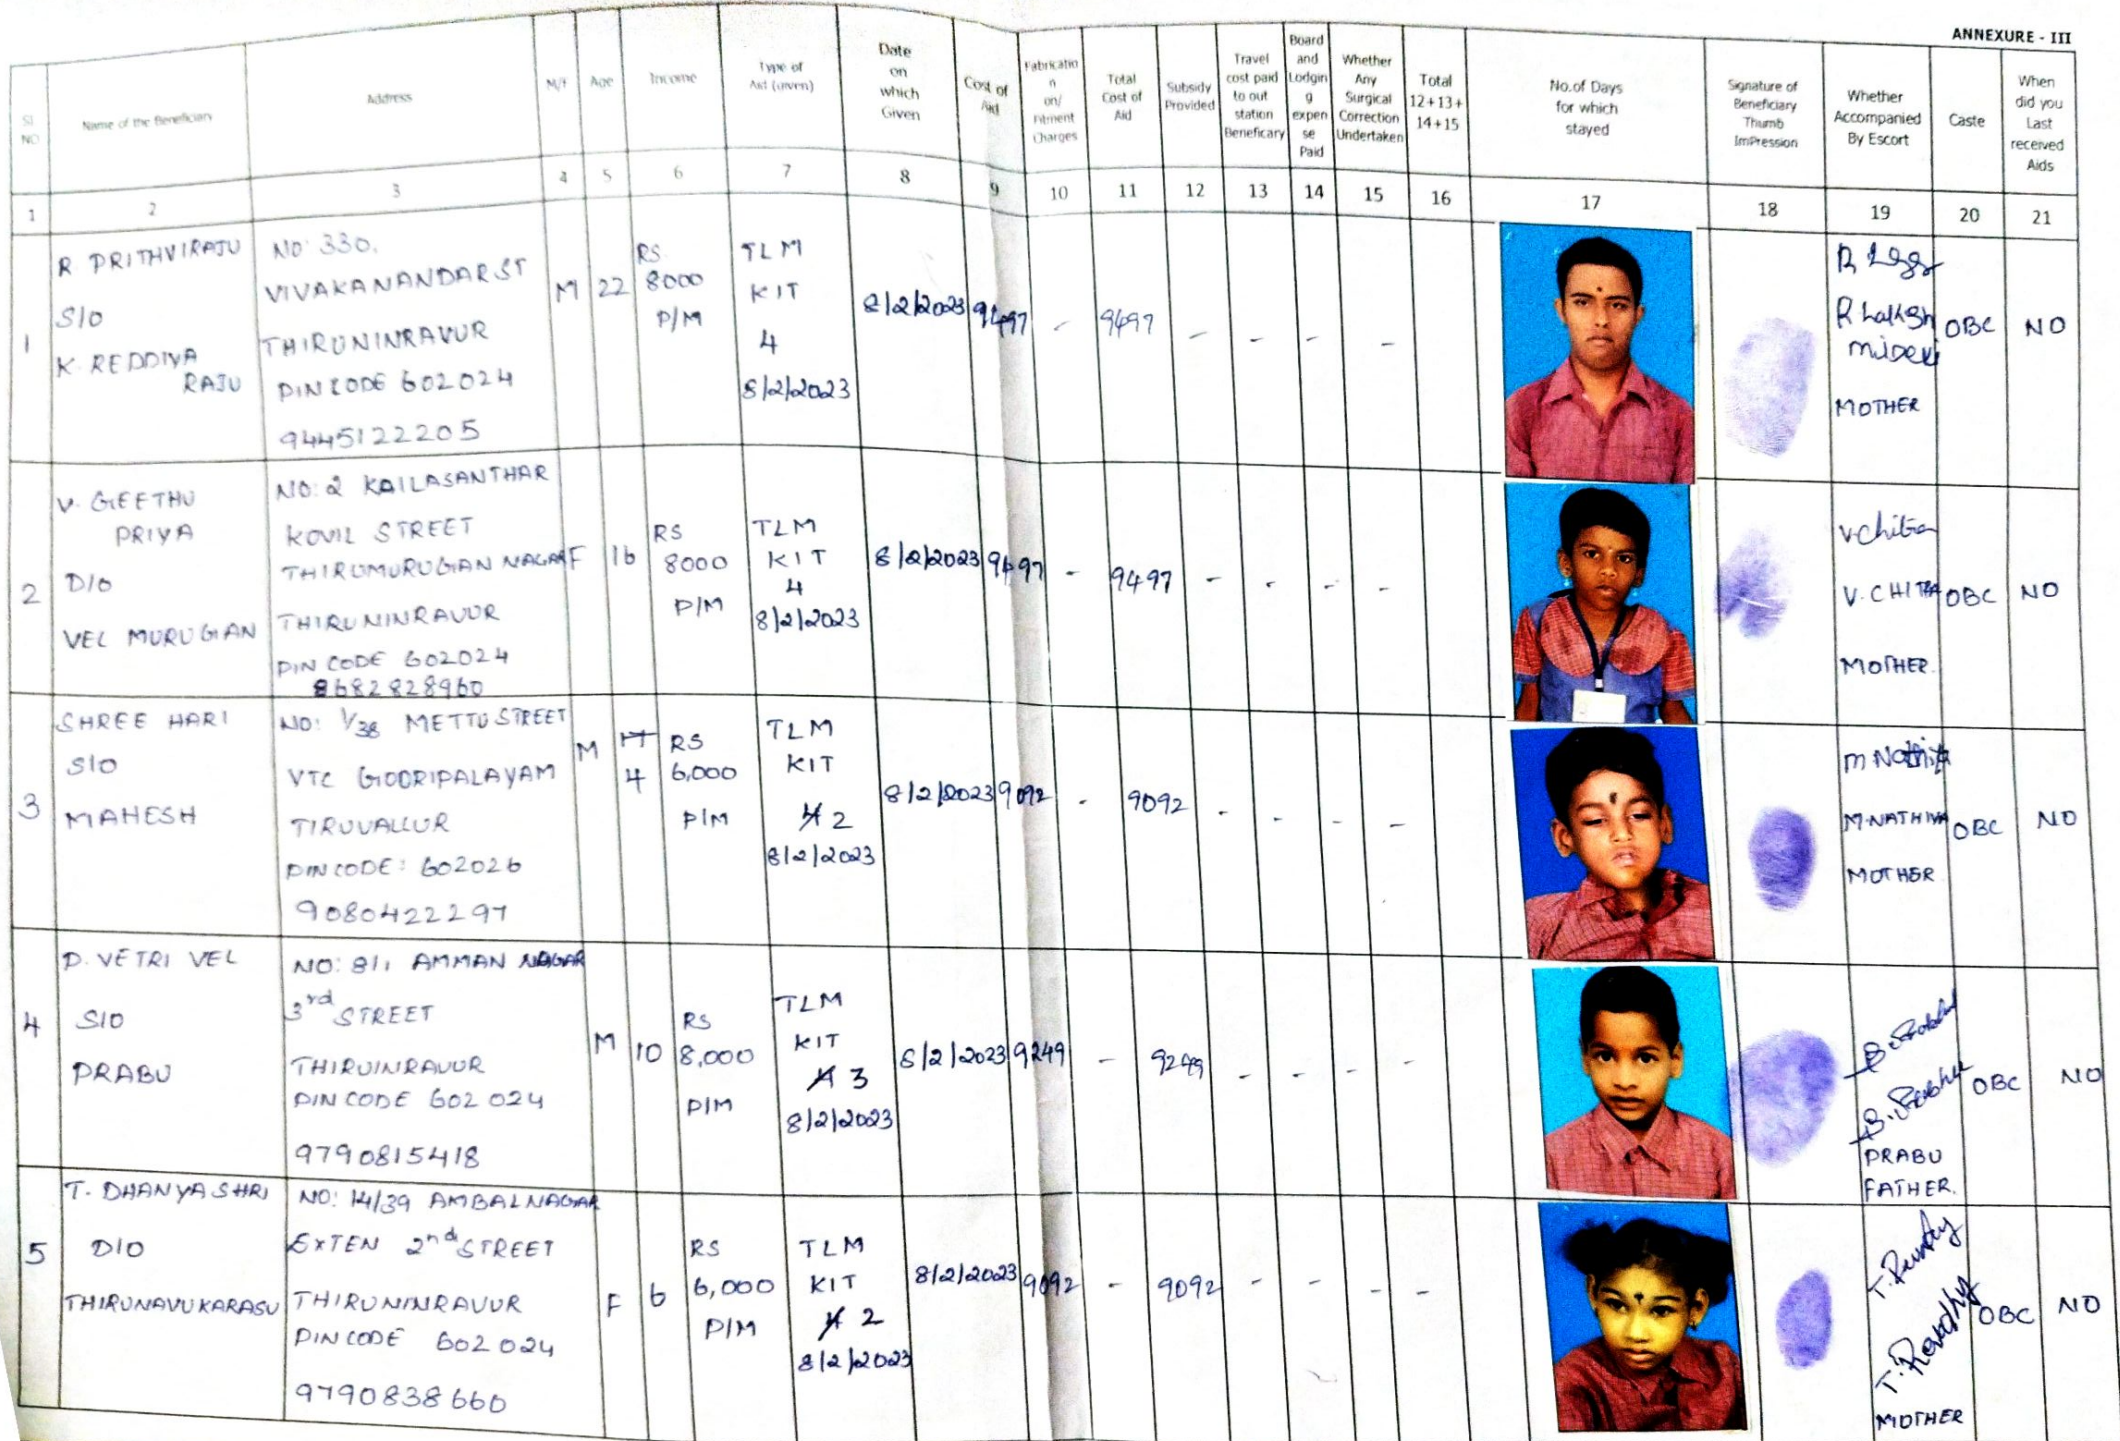 ANNEXURE - III
SI NO
Name of the Beneficiary
Address
M/F
Age
Income
Type of
Aid (Given)
Date
on
which
Given
Cost of
Aid
Fabricatio
n
on/
Fitment
Charges
Total
Cost of
Aid
Subsidy
Provided
Travel
cost paid
to out
station
Beneficary
Board
and
Lodgin
g
expen
se
Paid
Whether
Any
Surgical
Correction
Undertaken
Total
12+13+
14+15
No.of Days
for which
stayed
Signature of
Beneficiary
Thumb
ImPression
Whether
Accompanied
By Escort
Caste
When
did you
Last
received
Aids
1 2 3 4 5 6 7 8 9 10 11 12 13 14 15 16 17 18 19 20 21
1
R. PRITHVIRAJU
S/O
K. REDDIYA
RAJU
NO: 330,
VIVAKANANDAR ST
THIRUNINRAVUR
PIN CODE 602024
9445122205
M
22
RS
8000
P/M
TLM
KIT
4
8/2/2023
8/2/2023
9497
-
9497
-
-
-
-
R Laksh
mi Devi
MOTHER
OBC
NO
2
V. GEETHU
PRIYA
D/O
VEL MURUGAN
NO: 2 KAILASANTHAR
KOVIL STREET
THIRUMURUGAN NAGAR
THIRUNINRAVUR
PIN CODE 602024
8682828960
F
16
RS
8000
P/M
TLM
KIT
4
8/2/2023
8/2/2023
9497
-
9497
-
-
-
-
V Chitra
V. CHITRA
MOTHER.
OBC
NO
3
SHREE HARI
S/O
MAHESH
NO: 1/38 METTU STREET
VTC GODRIPALAYAM
TIRUVALLUR
PIN CODE: 602026
9080422297
M
4
RS
6,000
P/M
TLM
KIT
2
8/2/2023
8/2/2023
9092
-
9092
-
-
-
-
M Nathiya
M. NATHIYA
MOTHER
OBC
NO
4
P. VETRI VEL
S/O
PRABU
NO: 8/1 AMMAN NAGAR
3rd STREET
THIRUINRAVUR
PIN CODE 602 024
9790815418
M
10
RS
8,000
P/M
TLM
KIT
3
8/2/2023
8/2/2023
9249
-
9249
-
-
-
-
PRABU
FATHER.
OBC
NO
5
T. DHANYASHRI
D/O
THIRUNAVUKARASU
NO: 14/39 AMBAL NAGAR
EXTEN 2nd STREET
THIRUNINRAVUR
PIN CODE 602 024
9790838660
F
6
RS
6,000
P/M
TLM
KIT
2
8/2/2023
8/2/2023
9092
-
9092
-
-
-
-
T. Revathy
MOTHER
OBC
NO